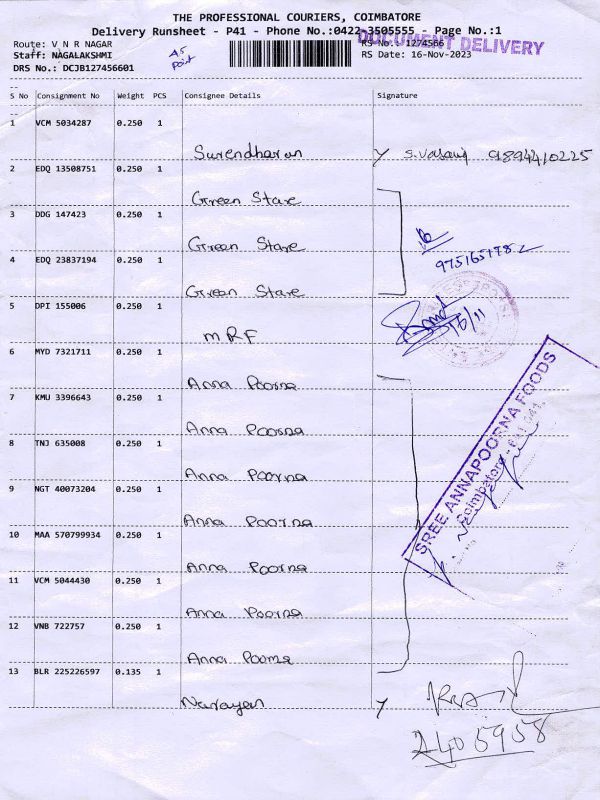 THE PROFESSIONAL COURIERS, COIMBATORE
Delivery Runsheet - P41 - Phone No.:0422-3505555 - Page No.:1
DOCUMENT DELIVERY
Route: V N R NAGAR
RS No.: 1274566
Staff: NAGALAKSHMI
RS Date: 16-Nov-2023
DRS No.: DCJB127456601
AS
point
S No Consignment No Weight PCS Consignee Details Signature
1 VCM 5034287 0.250 1
Surendharan 9894410225
2 EDQ 13508751 0.250 1
Green Stare
3 DDG 147423 0.250 1
Green Stare
4 EDQ 23837194 0.250 1
Green Stare
5 DPI 155006 0.250 1
MRF 16/11
6 MYD 7321711 0.250 1
Anna Poorna
7 KMU 3396643 0.250 1
Anna Poorna
8 TNJ 635008 0.250 1
Anna Poorna
9 NGT 40073204 0.250 1
Anna Poorna
10 MAA 570799934 0.250 1
Anna Poorna
11 VCM 5044430 0.250 1
Anna Poorna
12 VNB 722757 0.250 1
Anna Poorna
13 BLR 225226597 0.135 1
Narayan
2405958
SREE ANNAPOORNA FOODS
Coimbatore - 641 041